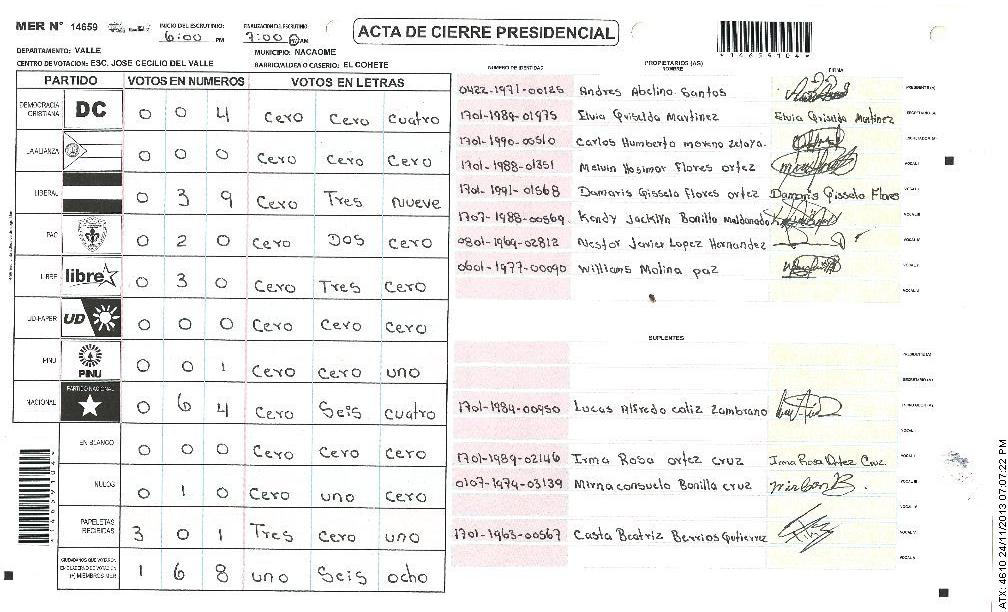 MER N° 14659
INICIO DEL ESCRUTINIO
6:00 PM
FINALIZACION ESCRUTINIO
7:00 AM
ACTA DE CIERRE PRESIDENCIAL
DEPARTAMENTO: VALLE
MUNICIPIO: NACAOME
CENTRO DE VOTACION: ESC. JOSE CECILIO DEL VALLE
BARRIO/ALDEA O CASERIO: EL COHETE
PARTIDO VOTOS EN NUMEROS VOTOS EN LETRAS
DEMOCRACIA CRISTIANA DC 0 0 4 Cero Cero cuatro
LA ALIANZA 0 0 0 Cero Cero Cero
LIBERAL 0 3 9 Cero Tres nueve
PAC 0 2 0 Cero Dos Cero
LIBRE libre 0 3 0 Cero Tres Cero
UD-FAPER UD 0 0 0 Cero Cero Cero
PINU PINU 0 0 1 Cero Cero uno
NACIONAL PARTIDO NACIONAL 0 6 4 Cero Seis cuatro
EN BLANCO 0 0 0 Cero Cero Cero
NULOS 0 1 0 Cero uno Cero
PAPELETAS RECIBIDAS 3 0 1 Tres Cero uno
CIUDADANOS QUE VOTARON EN CUADERNO DE VOTACION (+) MIEMBROS MER 1 6 8 uno Seis ocho
NUMERO DE IDENTIDAD PROPIETARIOS (AS) NOMBRE FIRMA
0422-1971-00125 Andres Abelino Santos PRESIDENTE (A)
1701-1989-01975 Elvia Griselda Martinez Elvia Griselda Martinez SECRETARIO (A)
1701-1990-00510 Carlos Humberto moreno zelaya ESCRUTADOR (A)
1701-1988-01351 Melvin Hosimor Flores ortez VOCAL I
1701-1991-01568 Damaris Gissela Flores ortez Damaris Gissela Flores VOCAL II
1707-1988-00569 Kendy Jacklyn Bonilla Maldonado VOCAL III
0801-1969-02812 Nestor Javier Lopez Hernandez VOCAL IV
0601-1977-00090 Williams Molina paz VOCAL V
SUPLENTES
PRESIDENTE (A)
SECRETARIO (A)
1701-1984-00950 Lucas Alfredo caliz zambrano ESCRUTADOR (A)
VOCAL I
1701-1989-02146 Irma Rosa ortez cruz Irma Rosa Ortez Cruz.
0107-1974-03139 Mirna consuelo Bonilla cruz VOCAL III
1701-1963-00567 Casta Beatriz Berrios Gutierrez
ATX: 4610 24/11/2013 07:07:22 PM